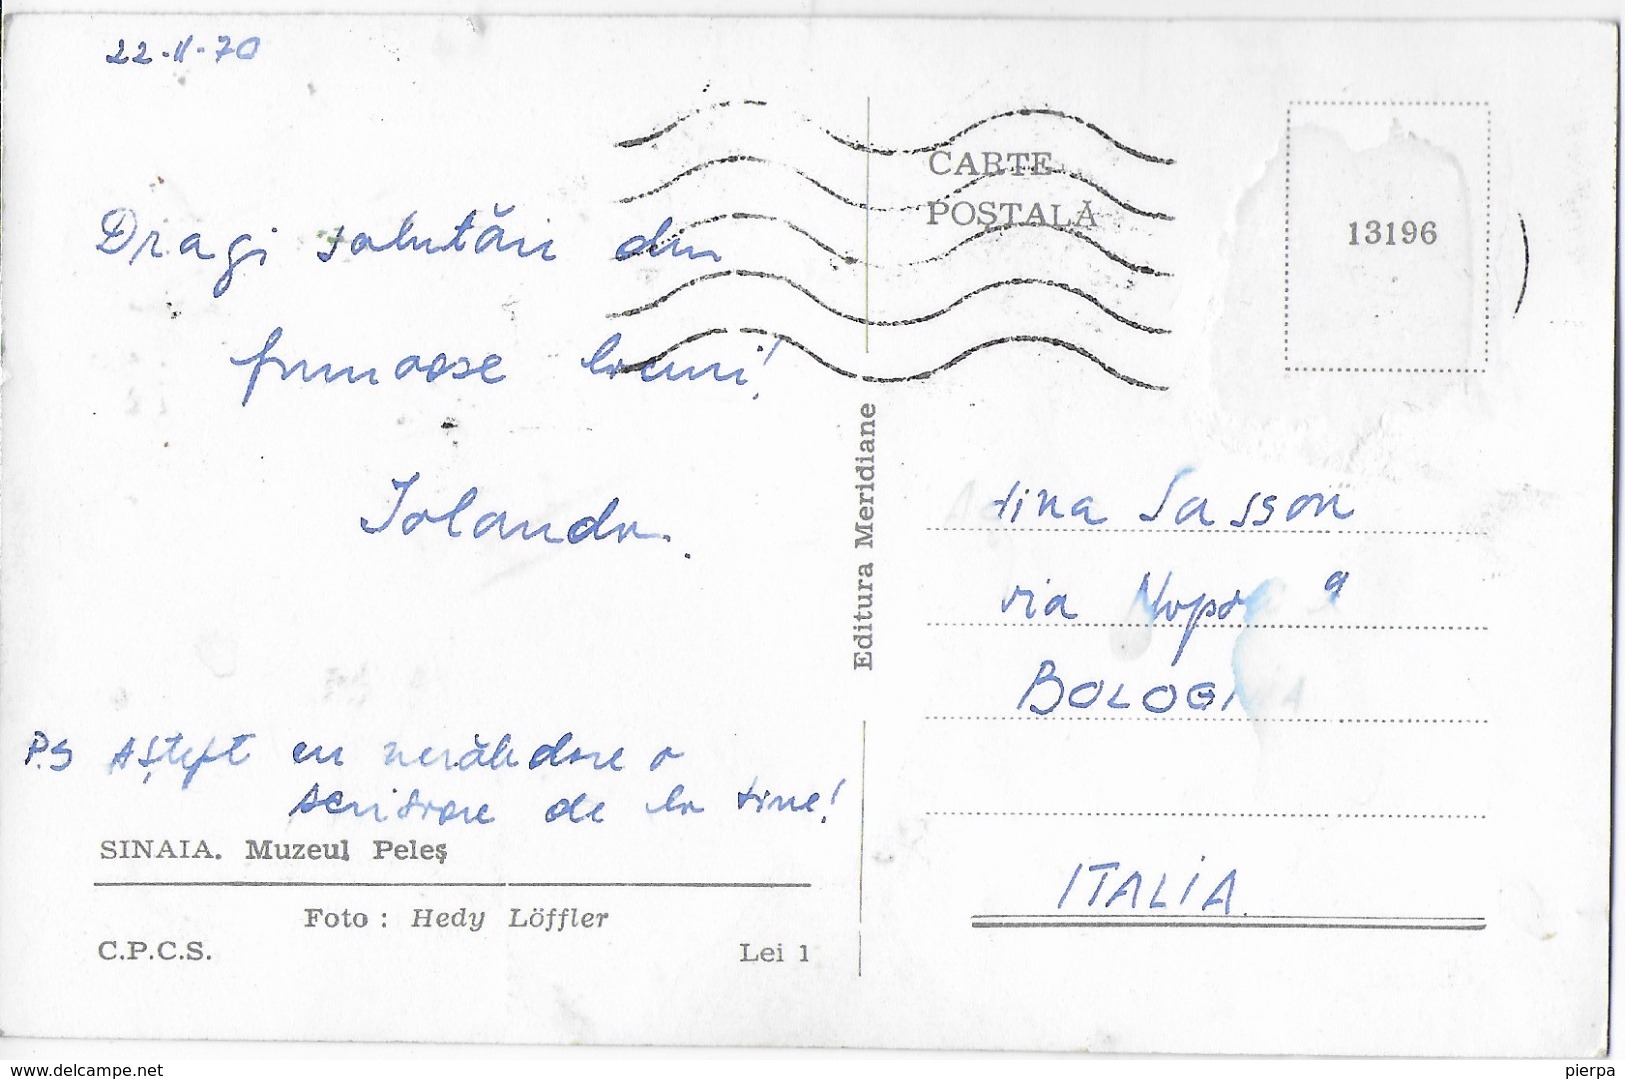 22-II-70
CARTE
POȘTALĂ
13196
Dragi salutări din
frumoase locuri!
Iolanda.
Editura Meridiane
Adina Sasson
via Napoli 9
BOLOGNA
ITALIA.
P.S Aștept cu nerăbdare o
scrisoare de la tine!
SINAIA. Muzeul Peleș
Foto : Hedy Löffler
C.P.C.S. Lei 1
www.delcampe.net
pierpa